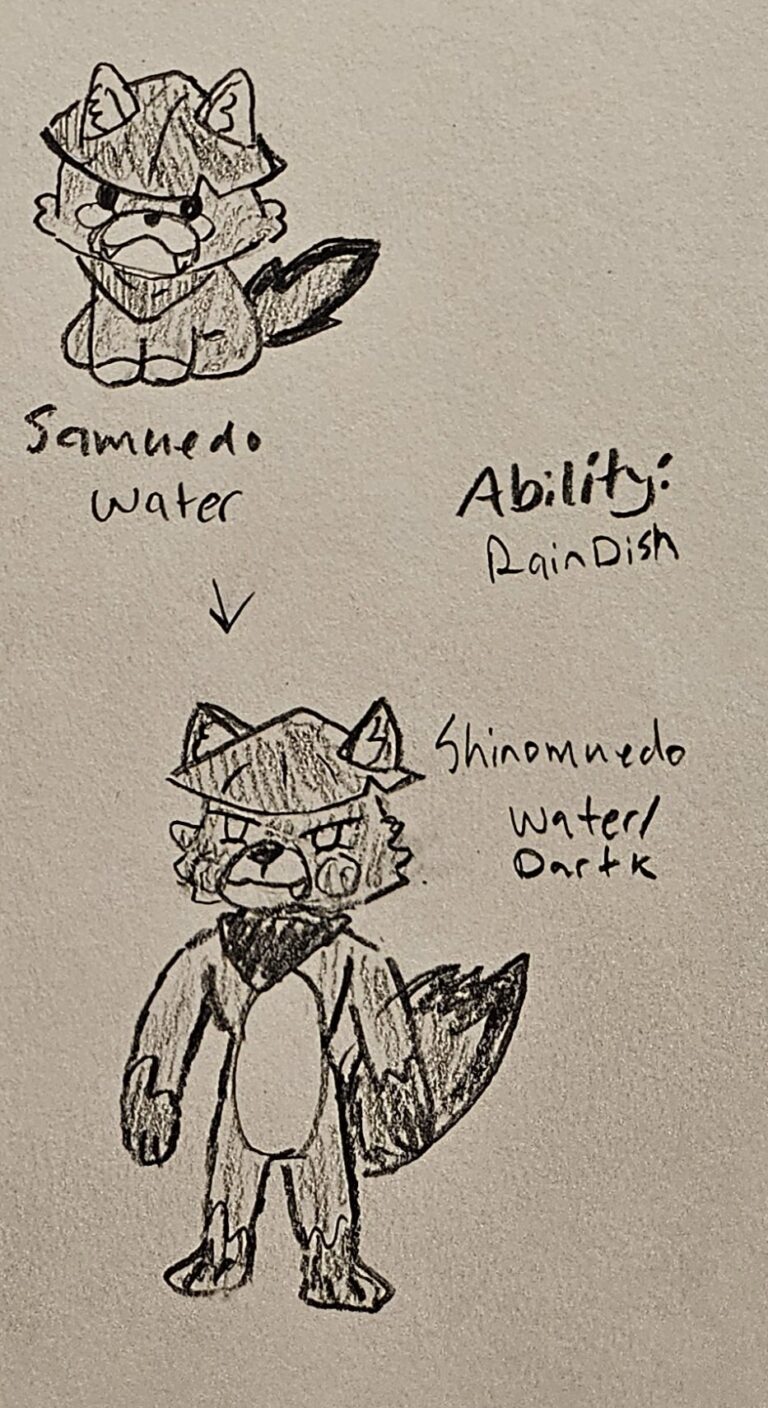 Samuedo
Water
Ability:
RainDish
Shinomuedo
Water/
Dartk